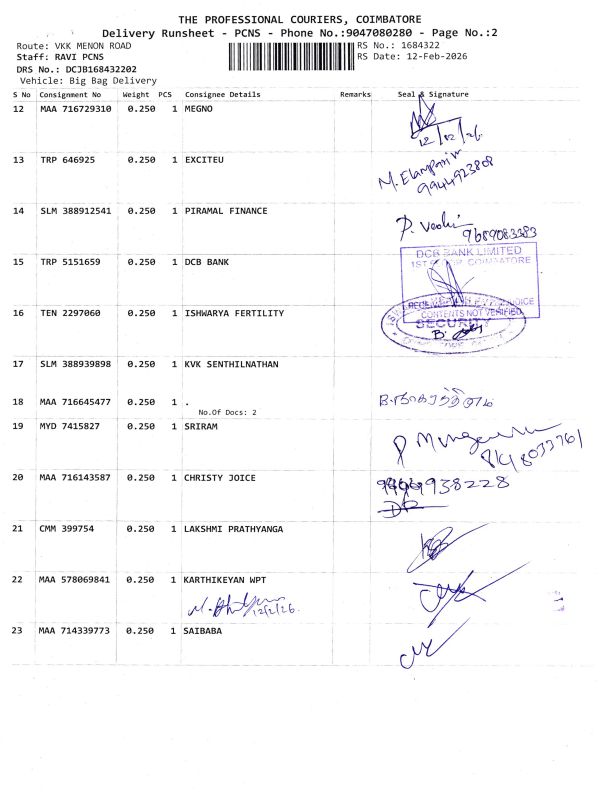 THE PROFESSIONAL COURIERS, COIMBATORE
Delivery Runsheet - PCNS - Phone No.:9047080280 - Page No.:2
Route: VKK MENON ROAD
RS No.: 1684322
Staff: RAVI PCNS
RS Date: 12-Feb-2026
DRS No.: DCJB168432202
Vehicle: Big Bag Delivery
S No Consignment No Weight PCS Consignee Details Remarks Seal & Signature
12 MAA 716729310 0.250 1 MEGNO
12/02/26
13 TRP 646925 0.250 1 EXCITEU
9944923808
14 SLM 388912541 0.250 1 PIRAMAL FINANCE
9689083383
DCB BANK LIMITED
15 TRP 5151659 0.250 1 DCB BANK
COIMBATORE
16 TEN 2297060 0.250 1 ISHWARYA FERTILITY
CONTENTS NOT VERIFIED
SECURITY
17 SLM 388939898 0.250 1 KVK SENTHILNATHAN
18 MAA 716645477 0.250 1 .
No.Of Docs: 2
19 MYD 7415827 0.250 1 SRIRAM
20 MAA 716143587 0.250 1 CHRISTY JOICE
21 CMM 399754 0.250 1 LAKSHMI PRATHYANGA
22 MAA 578069841 0.250 1 KARTHIKEYAN WPT
12/2/26
23 MAA 714339773 0.250 1 SAIBABA